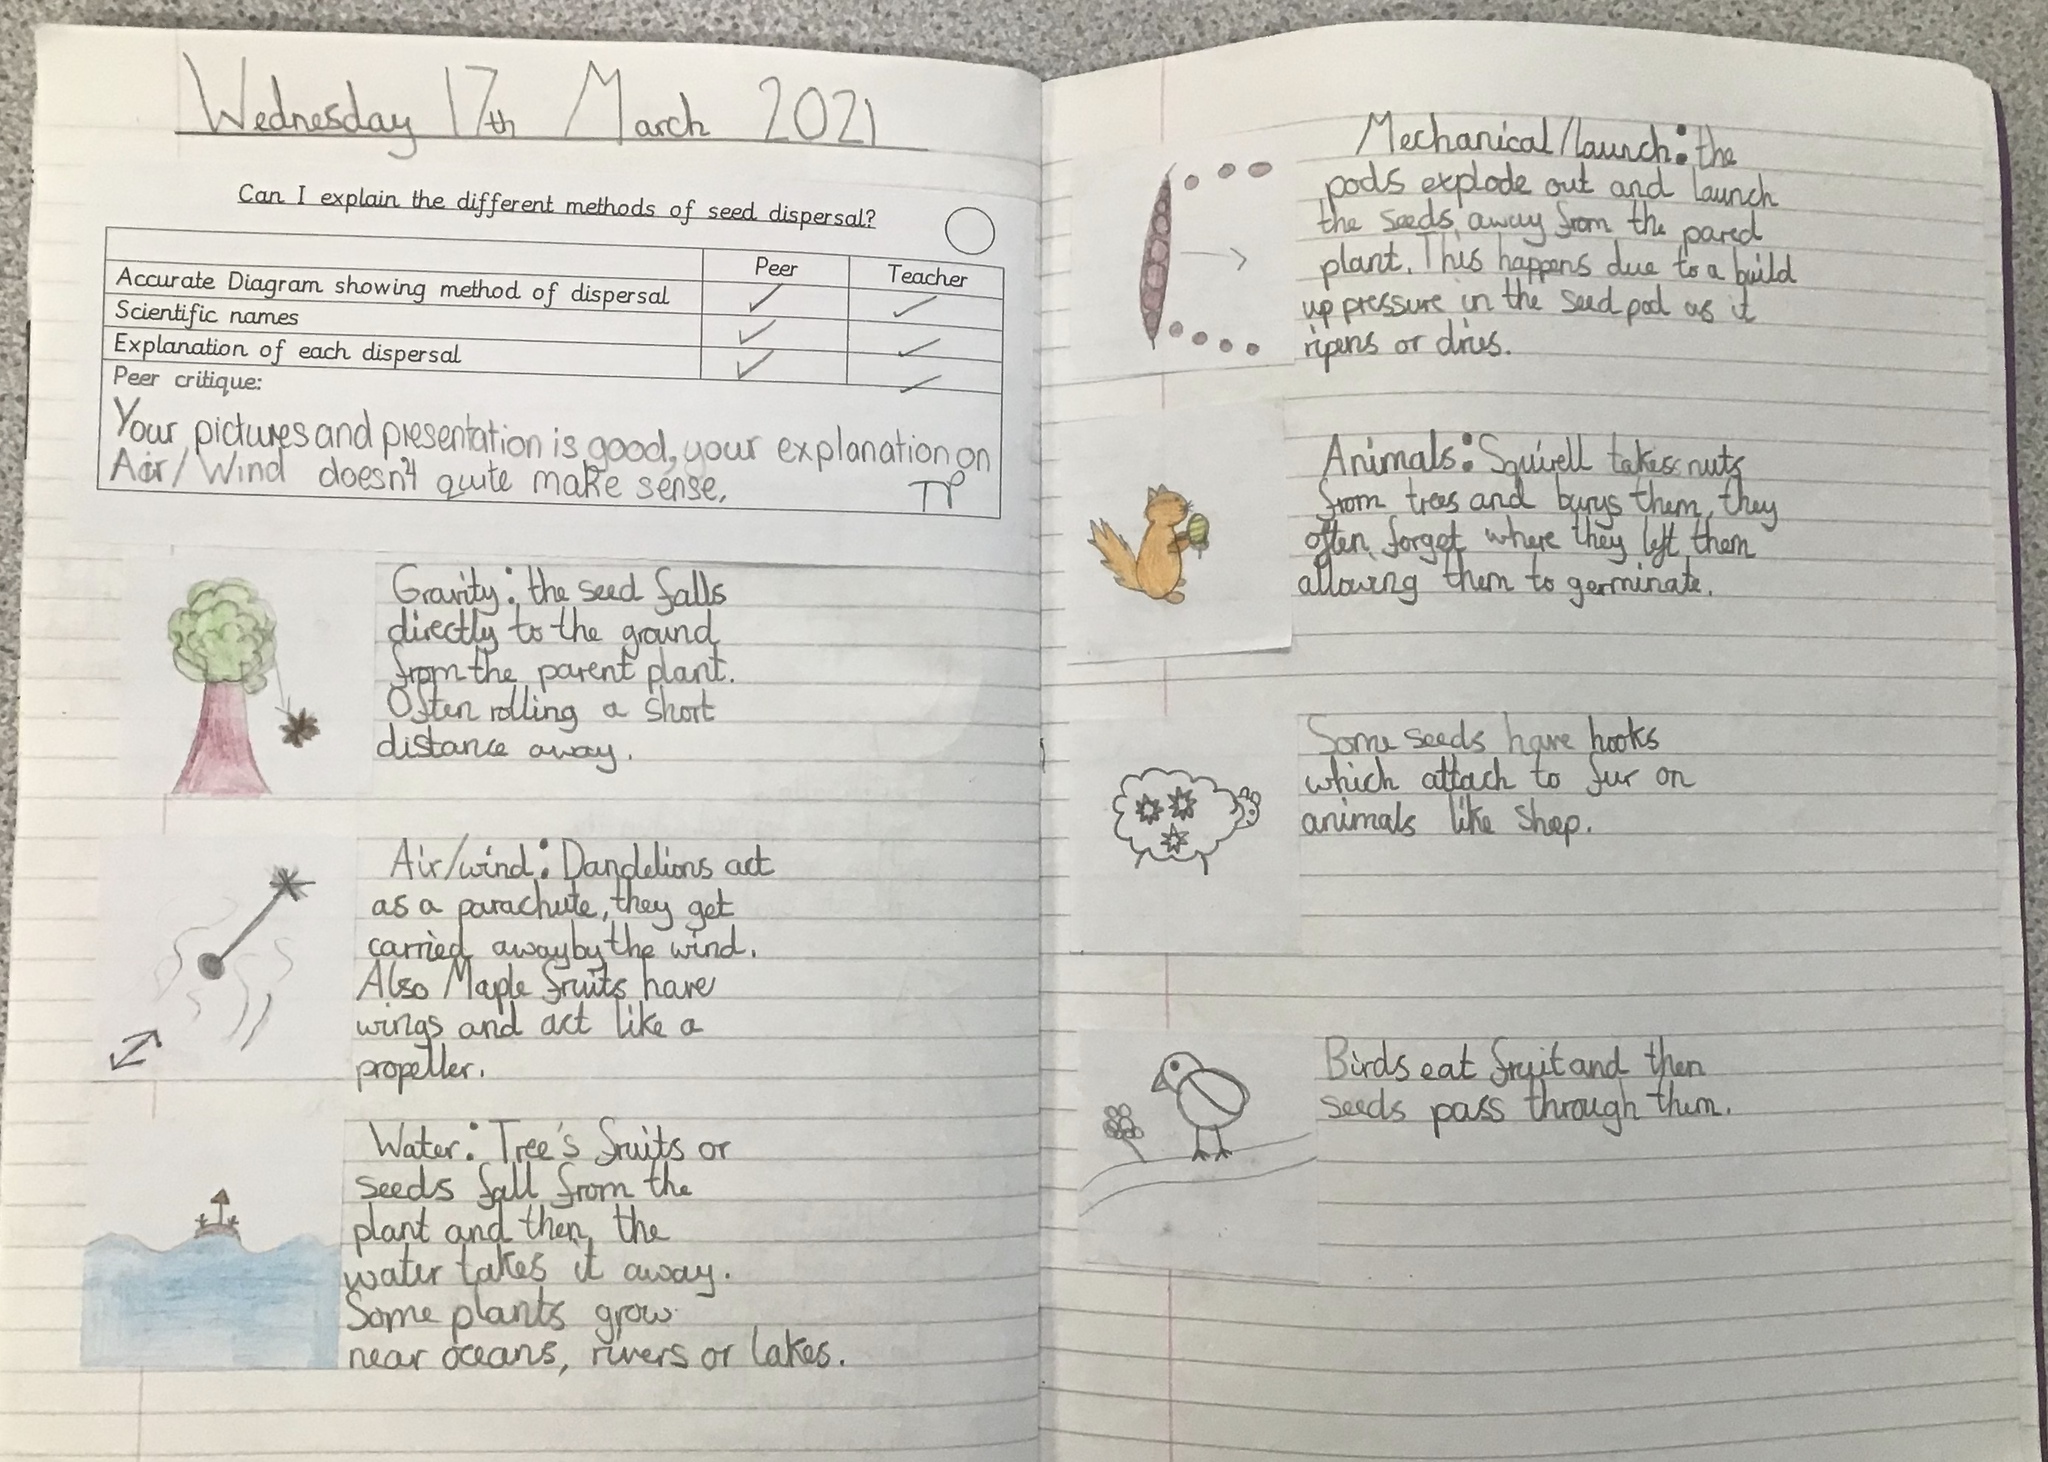 Wednesday 17th March 2021
Can I explain the different methods of seed dispersal?
Peer Teacher
Accurate Diagram showing method of dispersal
Scientific names
Explanation of each dispersal
Peer critique:
Your pictures and presentation is good, your explanation on
Air/Wind doesn't quite make sense.
TP
Gravity: the seed falls
directly to the ground
from the parent plant.
Often rolling a short
distance away.
Air/wind: Dandelions act
as a parachute, they get
carried away by the wind.
Also Maple fruits have
wings and act like a
propeller.
Water: Tree's fruits or
seeds fall from the
plant and then the
water takes it away.
Some plants grow
near oceans, rivers or lakes.
Mechanical/launch: the
pods explode out and launch
the seeds away from the pared
plant. This happens due to a build
up pressure in the seed pod as it
ripens or dries.
Animals: Squirell takes nuts
from trees and burys them, they
often forget where they left them
allowing them to germinate.
Some seeds have hooks
which attach to fur on
animals like sheep.
Birds eat fruit and then
seeds pass through them.